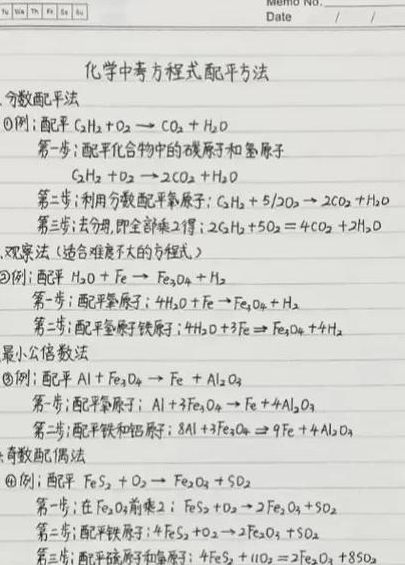 Tu We Th Fr Sa Su
Memo No.
Date / /
化学中考方程式配平方法
、分数配平法
①例：配平 C₂H₂ + O₂ → CO₂ + H₂O
第一步：配平化合物中的碳原子和氢原子
C₂H₂ + O₂ → 2CO₂ + H₂O
第二步：利用分数配平氧原子：C₂H₂ + 5/2O₂ → 2CO₂ + H₂O
第三步：去分母，即全部乘2得：2C₂H₂ + 5O₂ = 4CO₂ + 2H₂O
、观察法（适合难度不大的方程式）
②例：配平 H₂O + Fe → Fe₃O₄ + H₂
第一步：配平氧原子：4H₂O + Fe → Fe₃O₄ + H₂
第二步：配平氢原子铁原子：4H₂O + 3Fe ⇒ Fe₃O₄ + 4H₂
最小公倍数法
③例：配平 Al + Fe₃O₄ → Fe + Al₂O₃
第一步：配平氧原子： Al + 3Fe₃O₄ → Fe + 4Al₂O₃
第二步：配平铁和铝原子：8Al + 3Fe₃O₄ ⇒ 9Fe + 4Al₂O₃
奇数配偶法
④例：配平 FeS₂ + O₂ → Fe₂O₃ + SO₂
第一步：在Fe₂O₃前乘2：FeS₂ + O₂ → 2Fe₂O₃ + SO₂
第二步：配平铁原子：4FeS₂ + O₂ → 2Fe₂O₃ + SO₂
第三步：配平硫原子和氧原子：4FeS₂ + 11O₂ = 2Fe₂O₃ + 8SO₂